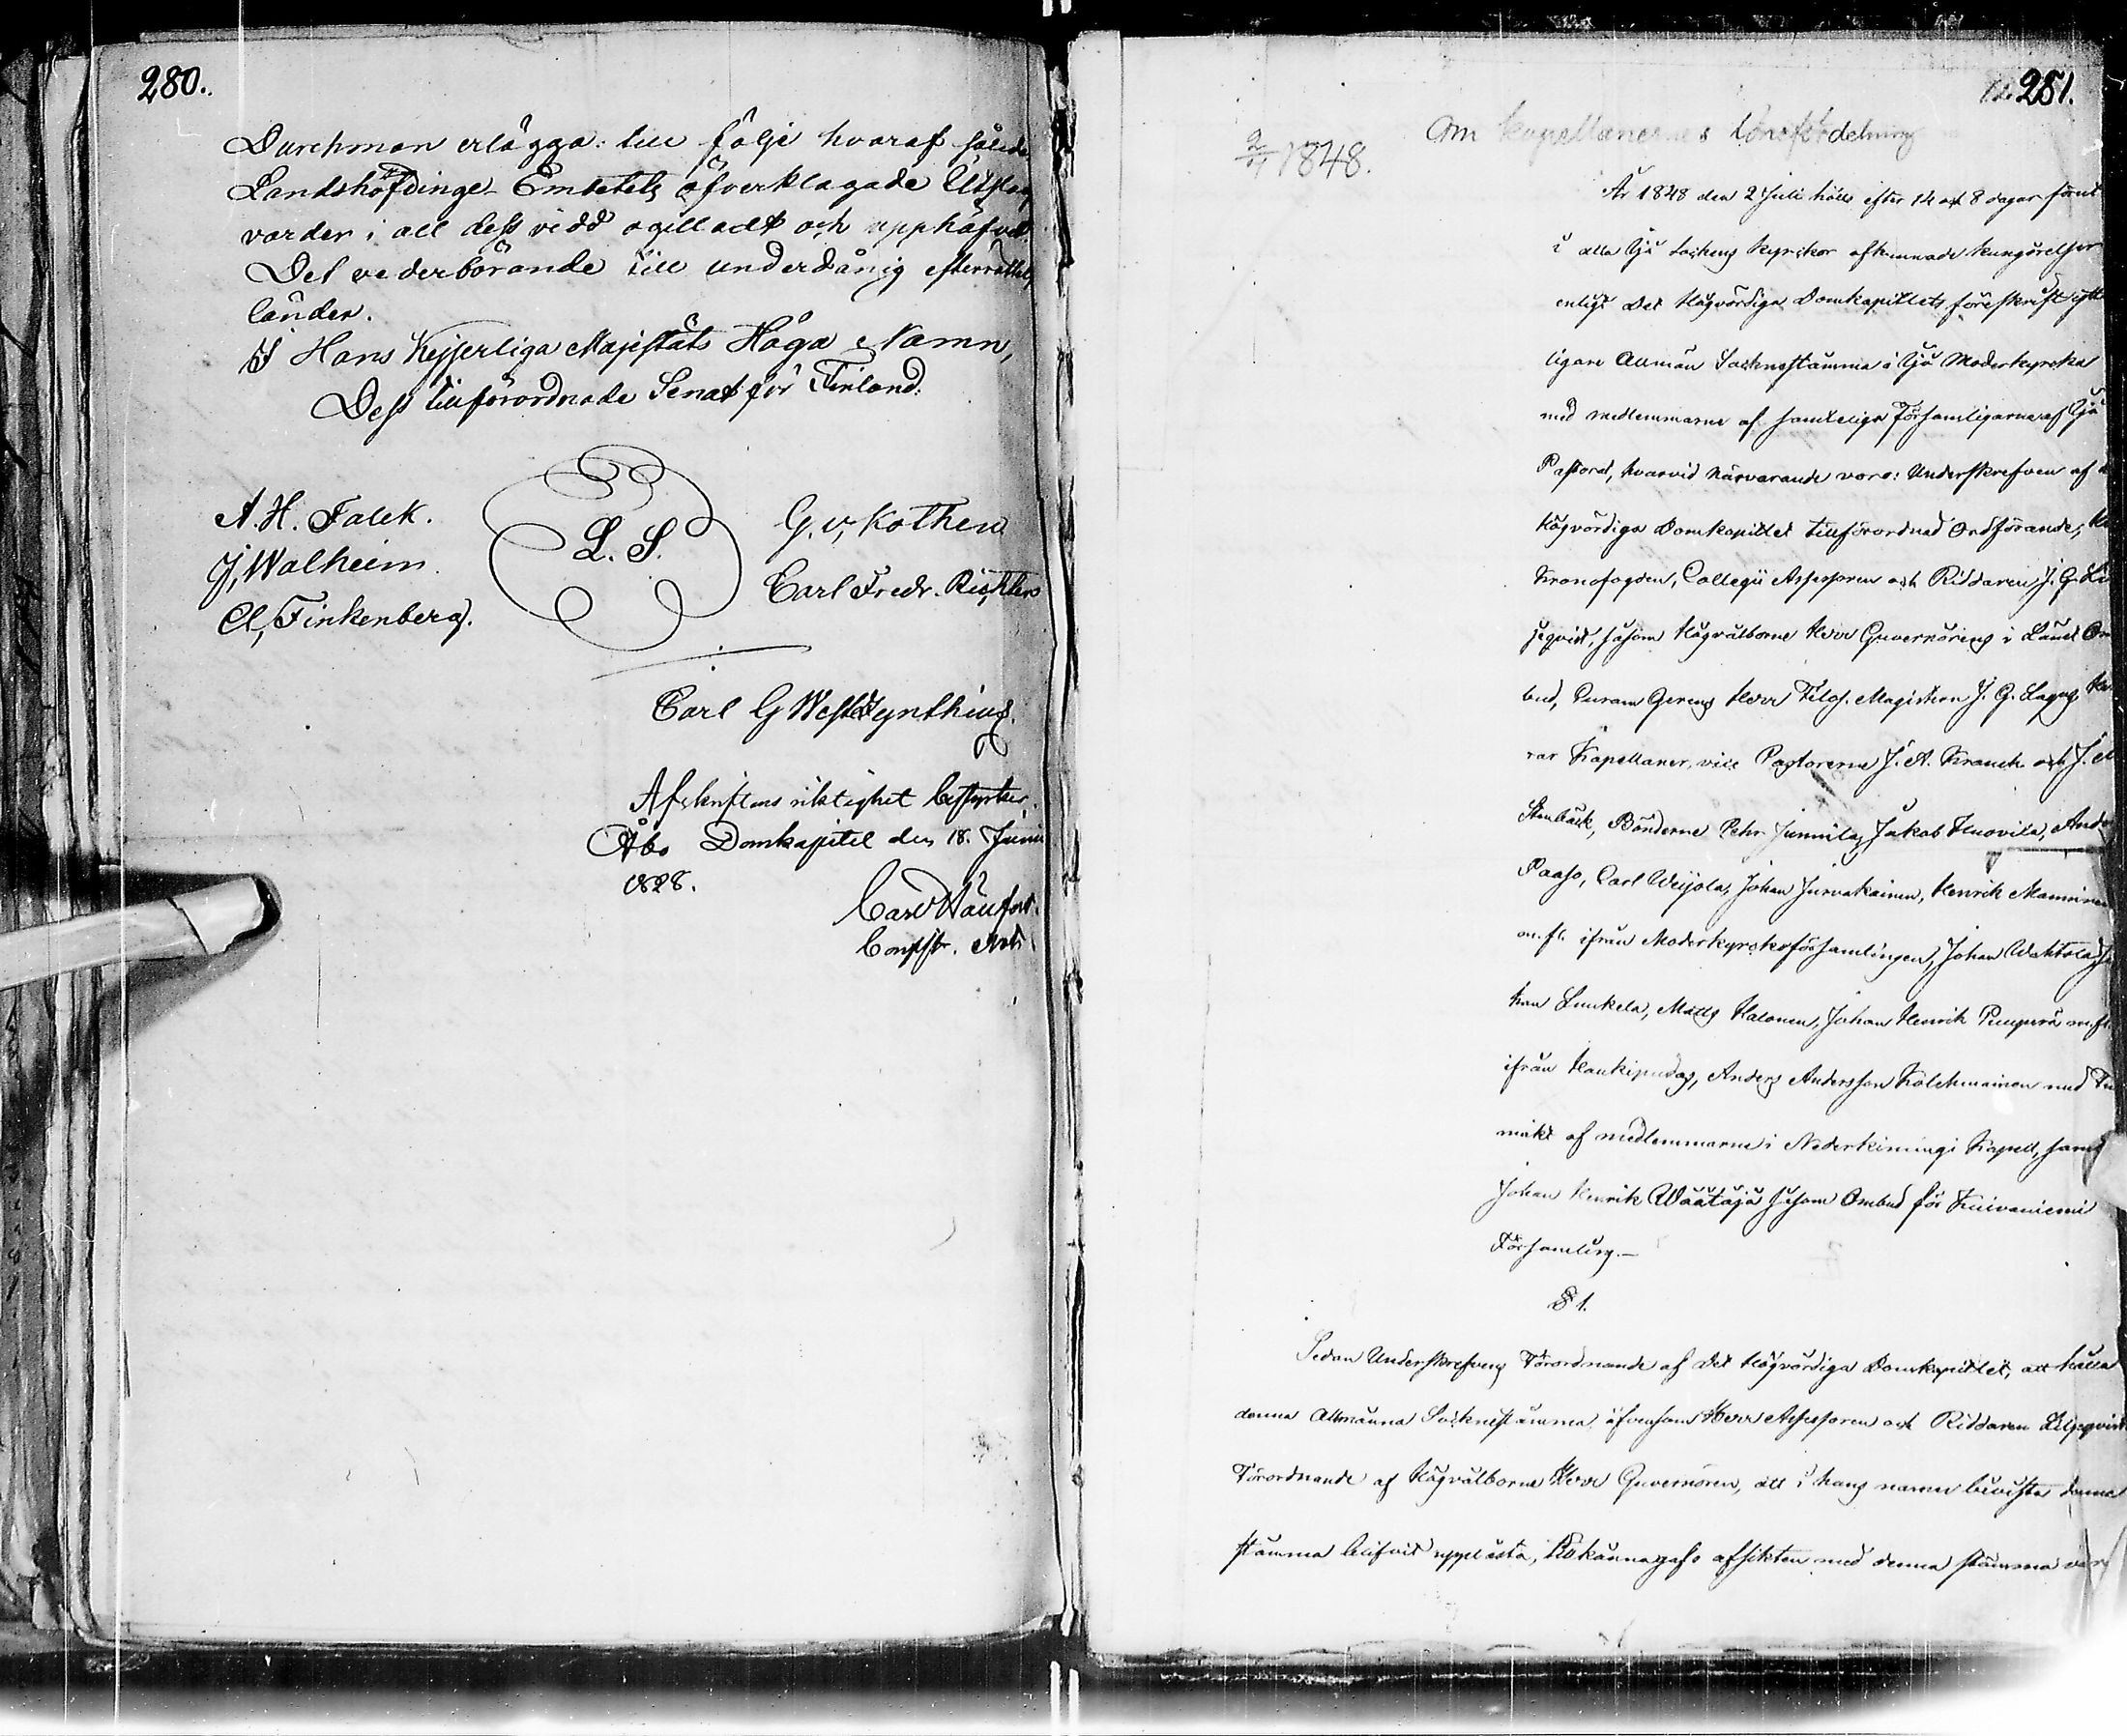 280.
Durchman erlägga: till följe hvaraf således
Landshöfdinge-Embetets öfverklagade Utslag
varder i all dess vidd ogilladt och upphäfvet.
Det vederbörande till underdånig efterrättelse
länder.
I Hans Kejserliga Majestäts Höga Namn,
Dess tillförordnade Senat för Finland.
A. H. Falck.
J, Walheim.
Cl, Finkenberg.
L. S.
G. v, Kothen
Carl Fredr. Richter
Carl G
Afskriftens riktighet bestyrker.
Åbo Domkapitel den 18. Junii
1828.
Carl
Consist. Not.
281.
Om kapellanernes lönefördelning
2/7 1848.
År 1848 den 2 Juli hölls efter 14 och 8 dagar förut
i alla Ijo Sockens kyrkor afkunnade kungörelser
enligt Det Högvördiga Domkapitlets föreskrift ytter
ligare Allmän Sockenstämma i Ijo Moderkyrka
med medlemmarne af samteliga Församligarne af Ijo
Pastorat, hvarvid närvarande voro: Underskrefven af
Högvördiga Domkapitlet tillförordnad Ordförande,
Kronofogden, Collegii Assessoren och Riddaren J. G. Li
jeqvist, såsom Högvälborne Herr Guvernörens i Länet Om
bud, Curam Gerens Herr Filos. Magistern J. G. Lagus
rar Kapellaner, vice Pastorerne J. A. Kranck och J.
Stenbäck, Bönderne Pehr Junnila, Jakob Huovila, Anders
Paaso, Carl Weijola, Johan Jurvakainen, Henrik Manninen
m. fl. ifrån Moderkyrkoförsamlingen, Johan Wahtola, Jo
han Luukela, Matts Halonen, Johan Henrik m. fl.
ifrån Haukipudas, Anders Andersson Kolehmainen med Full
makt af medlemmarne i Nederkiimingi Kapell, samt
Johan Henrik Wäätäjä såsom Ombud för Kuivaniemi
Församling.—
§ 1.
Sedan Underskrefvens Förordnande af Det Högvördiga Domkapitlet, att hålla
denna Allmänna Sockenstämma, äfvensom Herr Assessoren och Riddaren Liljeqvists
Förordnande af Högvälborne Herr Guvernören, att i hans namn bevista denna
stämma blifvit upplästa, tillkännagafs afsikten med denna stämma vara